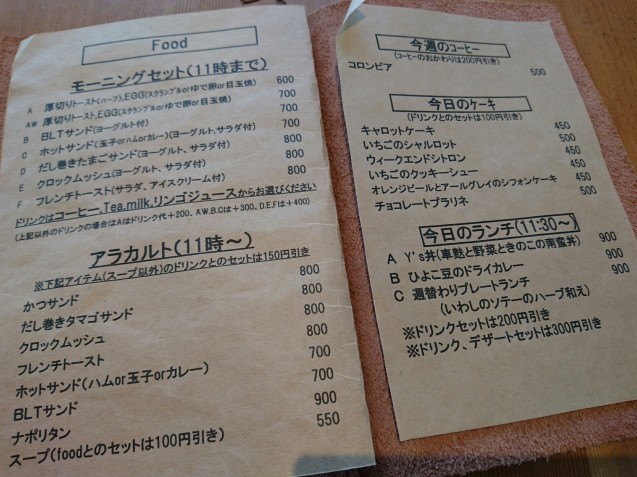 Food
モーニングセット(11時まで)
A 厚切りトースト(ハーフ),EGG(スクランブルorゆで卵or目玉焼) 600
AW 厚切りトースト,EGG(スクランブルorゆで卵or目玉焼) 700
B BLTサンド(ヨーグルト付) 700
C ホットサンド(玉子orハムorカレー)(ヨーグルト、サラダ付) 700
D だし巻きたまごサンド(ヨーグルト、サラダ付) 800
E クロックムッシュ(ヨーグルト、サラダ付) 800
F フレンチトースト(サラダ、アイスクリーム付) 800
ドリンクはコーヒー,Tea,milk,リンゴジュースからお選びください
(上記以外のドリンクの場合はAはドリンク代+200、A.W,B.Cは+300、D.E.Fは+400)
アラカルト(11時～)
※下記アイテム(スープ以外)のドリンクとのセットは150円引き
かつサンド 800
だし巻きタマゴサンド 800
クロックムッシュ 800
フレンチトースト 800
ホットサンド(ハムor玉子orカレー) 700
BLTサンド 700
ナポリタン 900
スープ(foodとのセットは100円引き) 550
今週のコーヒー
(コーヒーのおかわりは200円引き)
コロンビア 500
今日のケーキ
(ドリンクとのセットは100円引き)
キャロットケーキ 450
いちごのシャルロット 500
ウィークエンドシトロン 450
いちごのクッキーシュー 450
オレンジピールとアールグレイのシフォンケーキ 450
チョコレートプラリネ 500
今日のランチ(11:30～)
A Y's丼(車麩と野菜ときのこの南蛮丼) 900
B ひよこ豆のドライカレー 900
C 週替わりプレートランチ 900
(いわしのソテーのハーブ和え)
※ドリンクセットは200円引き
※ドリンク、デザートセットは300円引き